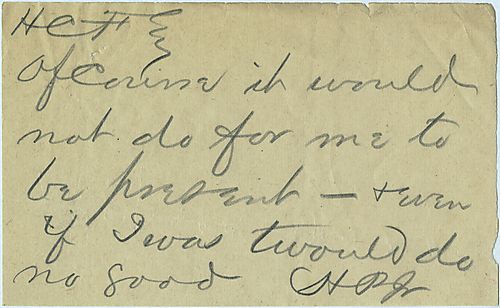 HCF
Of Course it would
not do for me to
be present — & even
if I was twould do
no good HPJr